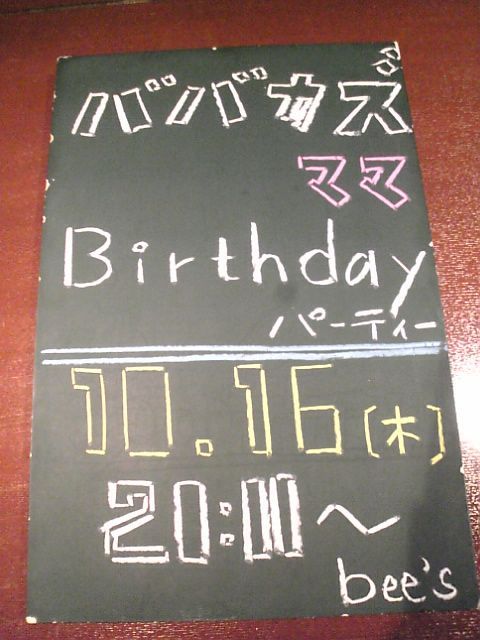 ババカズ
ママ
Birthday
パーティー
10.16〔木〕
20:00〜
bee's